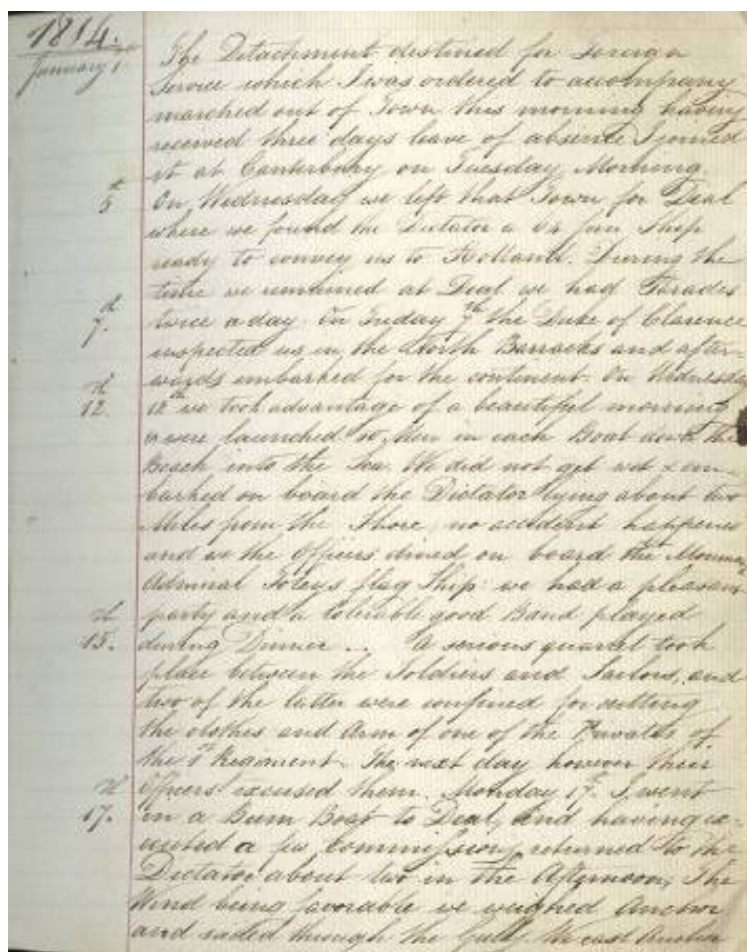 1814.
January 1
The Detachment destined for Foreign
Service which I was ordered to accompany
marched out of Town this morning having
received three days leave of absence I joined
it at Canterbury on Tuesday Morning.
5th On Wednesday we left that Town for Deal
where we found the Dictator a 64 Gun Ship
ready to convey us to Holland. During the
time we remained at Deal we had Parades
7th twice a day. On Friday 7th the Duke of Clarence
inspected us in the North Barracks and after-
wards embarked for the continent. On Wednesday
12th 12th we took advantage of a beautiful morning
& were launched 50 Men in each Boat down the
Beach into the Sea. We did not get wet & em-
barked on board the Dictator lying about two
Miles from the Shore, no accident happened
and we the Officers dined on board the
Admiral Foley's flag Ship: we had a pleasant
party and a tolerable good Band played
15th during Dinner .. A serious quarrel took
place between the Soldiers and Sailors, and
two of the latter were confined for cutting
the clothes and Arm of one of the Privates of
the 1st Regiment. The next day however their
Officers excused them. Monday 17th. I went
17th in a Bum Boat to Deal, and having ex-
ecuted a few commissions returned to the
Dictator about two in the Afternoon, The
Wind being favorable we weighed Anchor
and sailed through the Gull. We cast Anchor